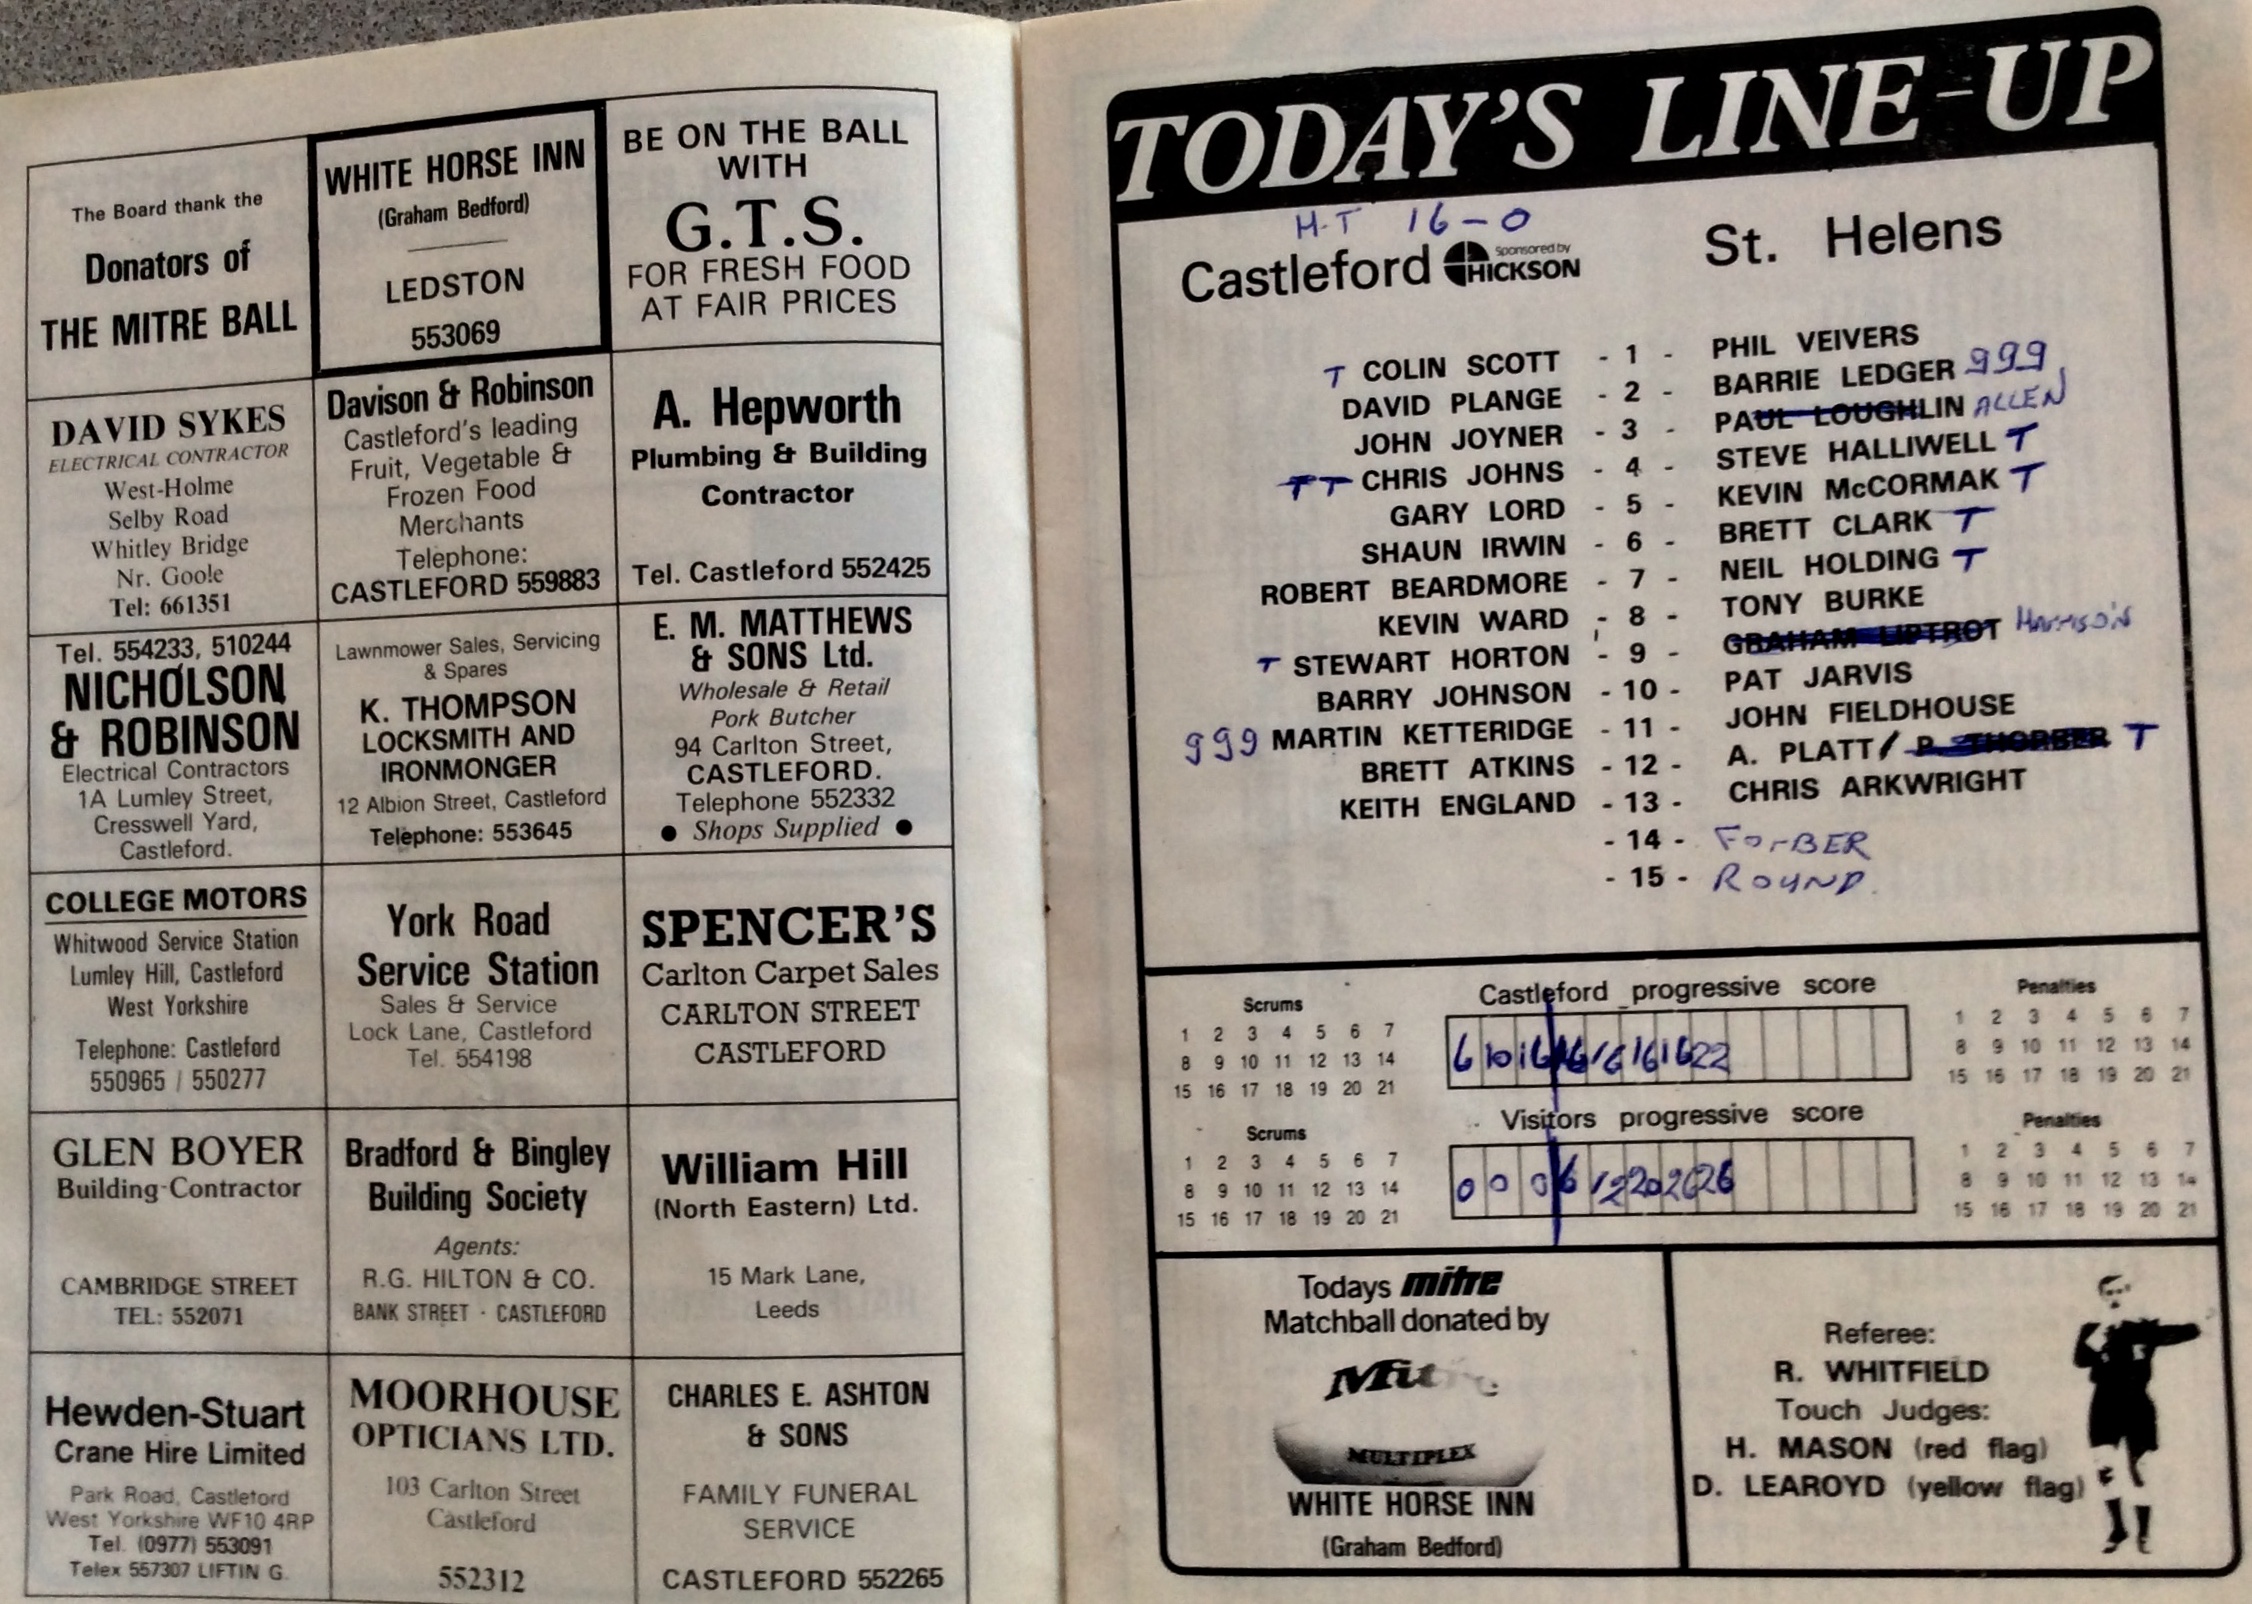 The Board thank the
Donators of
THE MITRE BALL
WHITE HORSE INN
(Graham Bedford)
LEDSTON
553069
BE ON THE BALL
WITH
G.T.S.
FOR FRESH FOOD
AT FAIR PRICES
DAVID SYKES
ELECTRICAL CONTRACTOR
West-Holme
Selby Road
Whitley Bridge
Nr. Goole
Tel: 661351
Davison & Robinson
Castleford's leading
Fruit, Vegetable &
Frozen Food
Merchants
Telephone:
CASTLEFORD 559883
A. Hepworth
Plumbing & Building
Contractor
Tel. Castleford 552425
Tel. 554233, 510244
NICHOLSON
& ROBINSON
Electrical Contractors
1A Lumley Street,
Cresswell Yard,
Castleford.
Lawnmower Sales, Servicing
& Spares
K. THOMPSON
LOCKSMITH AND
IRONMONGER
12 Albion Street, Castleford
Telephone: 553645
E. M. MATTHEWS
& SONS Ltd.
Wholesale & Retail
Pork Butcher
94 Carlton Street,
CASTLEFORD.
Telephone 552332
● Shops Supplied ●
COLLEGE MOTORS
Whitwood Service Station
Lumley Hill, Castleford
West Yorkshire
Telephone: Castleford
550965 / 550277
York Road
Service Station
Sales & Service
Lock Lane, Castleford
Tel. 554198
SPENCER'S
Carlton Carpet Sales
CARLTON STREET
CASTLEFORD
GLEN BOYER
Building Contractor
CAMBRIDGE STREET
TEL: 552071
Bradford & Bingley
Building Society
Agents:
R.G. HILTON & CO.
BANK STREET · CASTLEFORD
William Hill
(North Eastern) Ltd.
15 Mark Lane,
Leeds
Hewden-Stuart
Crane Hire Limited
Park Road, Castleford
West Yorkshire WF10 4RP
Tel. (0977) 553091
Telex 557307 LIFTIN G
MOORHOUSE
OPTICIANS LTD.
103 Carlton Street
Castleford
552312
CHARLES E. ASHTON
& SONS
FAMILY FUNERAL
SERVICE
CASTLEFORD 552265
TODAY'S LINE-UP
H.T 16-0
Castleford Sponsored by HICKSON St. Helens
T COLIN SCOTT - 1 - PHIL VEIVERS
DAVID PLANGE - 2 - BARRIE LEDGER 999
JOHN JOYNER - 3 - PAUL LOUGHLIN ALLEN
TT CHRIS JOHNS - 4 - STEVE HALLIWELL T
GARY LORD - 5 - KEVIN McCORMAK T
SHAUN IRWIN - 6 - BRETT CLARK T
ROBERT BEARDMORE - 7 - NEIL HOLDING T
KEVIN WARD - 8 - TONY BURKE
T STEWART HORTON - 9 - GRAHAM LIPTROT HARRISON
BARRY JOHNSON - 10 - PAT JARVIS
999 MARTIN KETTERIDGE - 11 - JOHN FIELDHOUSE
BRETT ATKINS - 12 - A. PLATT / P. T
KEITH ENGLAND - 13 - CHRIS ARKWRIGHT
- 14 - FORBER
- 15 - ROUND.
Scrums
1 2 3 4 5 6 7
8 9 10 11 12 13 14
15 16 17 18 19 20 21
Castleford progressive score
6 10 16 16 16 16 16 22
Penalties
1 2 3 4 5 6 7
8 9 10 11 12 13 14
15 16 17 18 19 20 21
Scrums
1 2 3 4 5 6 7
8 9 10 11 12 13 14
15 16 17 18 19 20 21
Visitors progressive score
0 0 0 6 12 20 26 26
Penalties
1 2 3 4 5 6 7
8 9 10 11 12 13 14
15 16 17 18 19 20 21
Todays mitre
Matchball donated by
Mitre
MULTIPLEX
WHITE HORSE INN
(Graham Bedford)
Referee:
R. WHITFIELD
Touch Judges:
H. MASON (red flag)
D. LEAROYD (yellow flag)